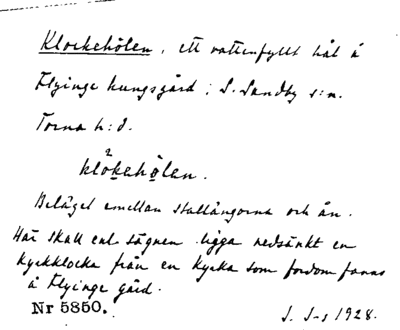 Klockehölen, ett vattenfyllt hål å
Flyinge kungsgård i S. Sandby s:n.
Torna h:d.
klökehölen.
Beläget emellan stallängorna och ån.
Här skall enl. sägnen ligga nedsänkt en
kyrkklocka från en kyrka som fordom fanns
å Flyinge gård.
Nr 5850.
S. S-g 1928.